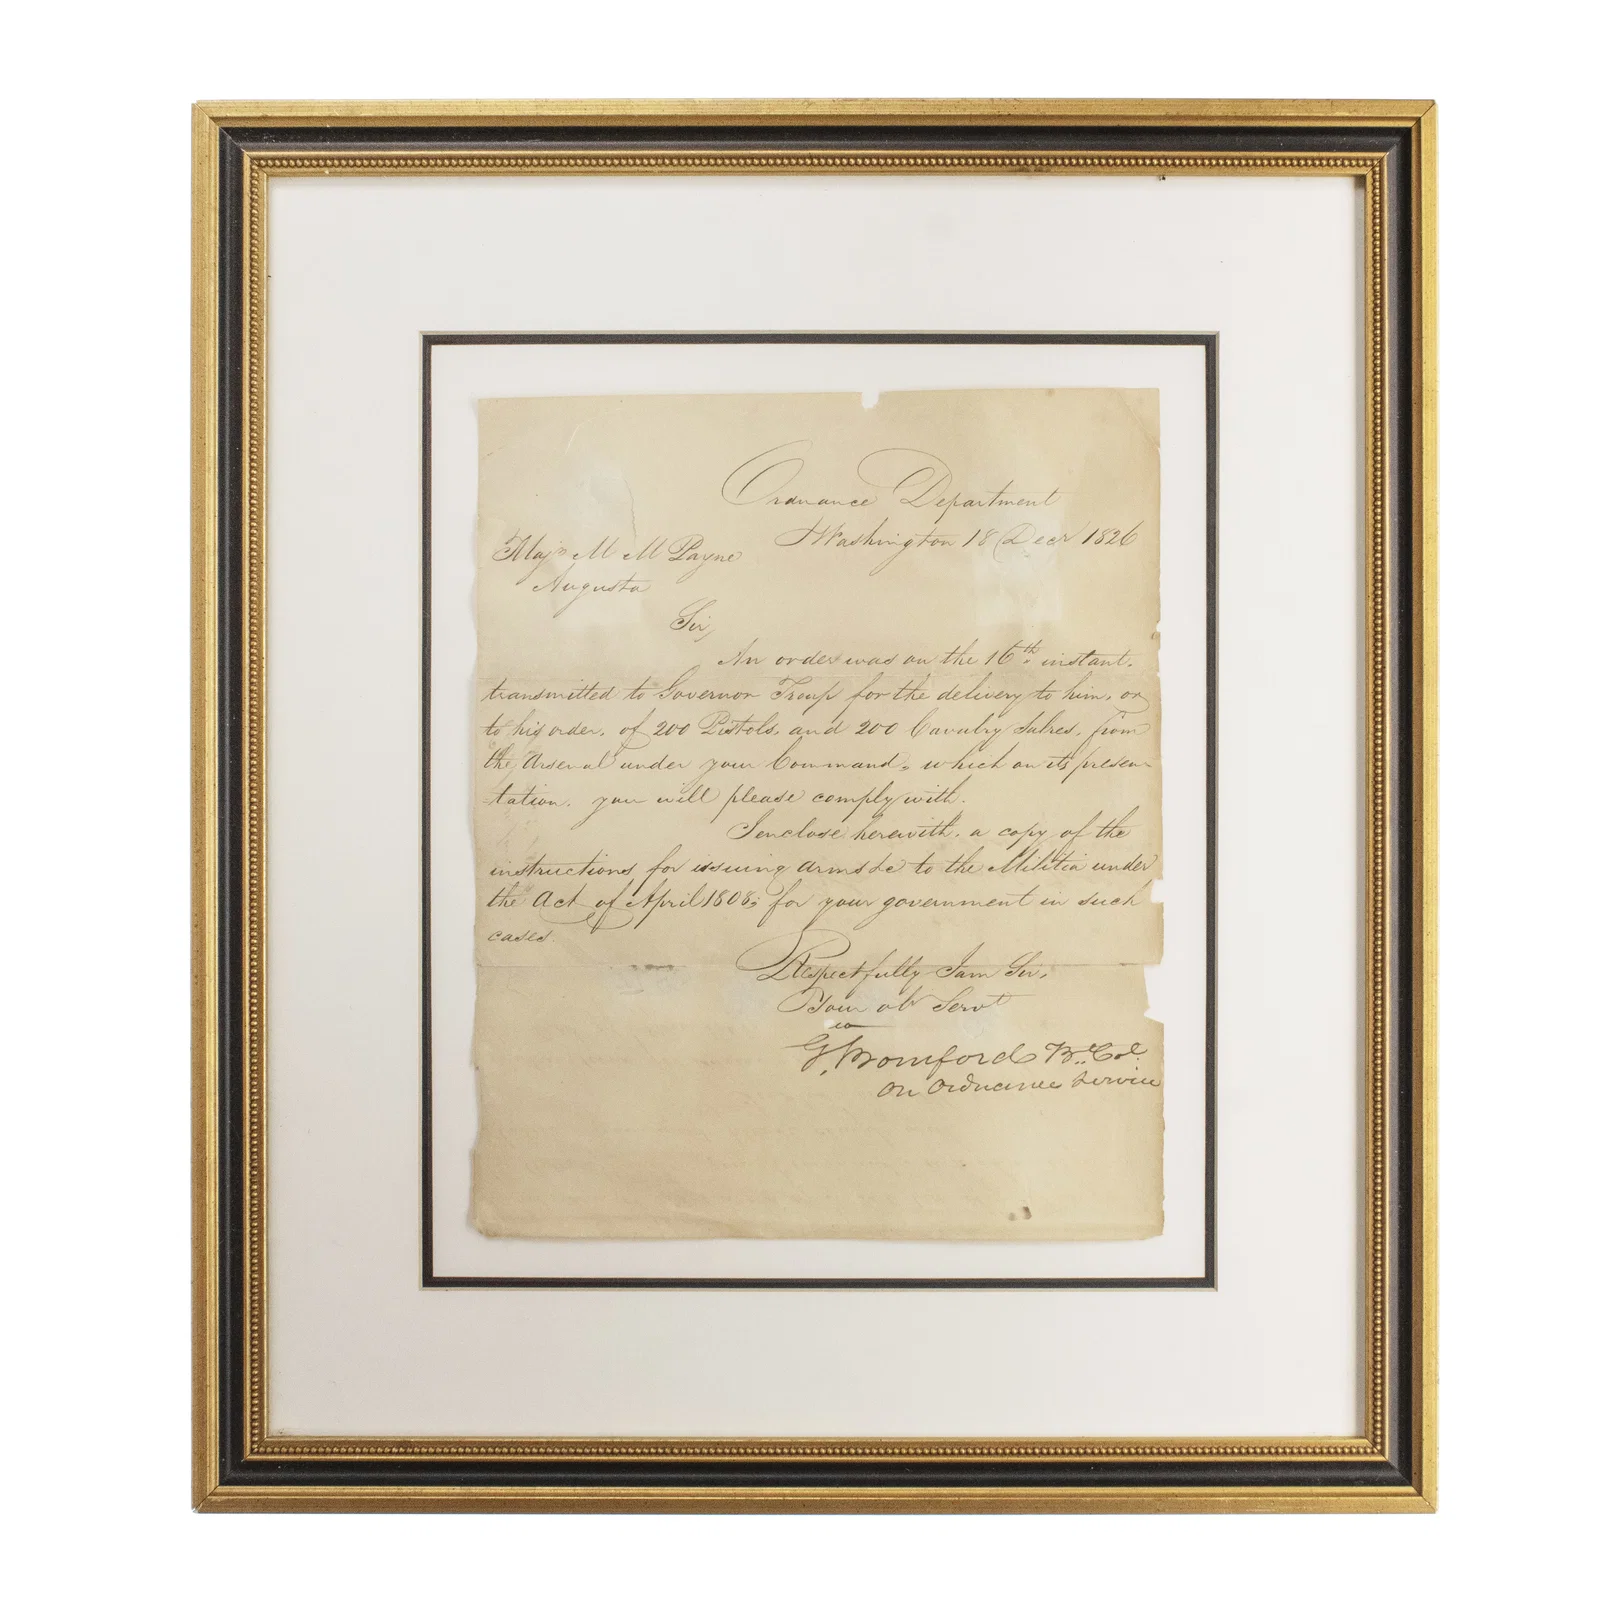 Ordnance Department
Washington 18 Decr 1826
Majr M M Payne
Augusta
Sir,
An order was on the 16th instant.
transmitted to Governor Troup for the delivery to him, or
to his order, of 200 Pistols, and 200 Cavalry Sabres, from
the Arsenal under your Command, which on its presen-
tation, you will please comply with.
I enclose herewith, a copy of the
instructions for issuing arms &c to the Militia under
the Act of April 1808, for your government in such
cases.
Respectfully I am Sir,
Your ob Servt
G. Bomford Bt Col.
on Ordnance Service